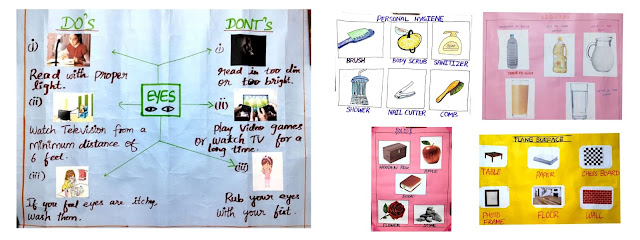 DO'S
DONT'S
EYES
i)
Read with proper
light.
(ii)
Watch Television from a
minimum distance of
6 feet.
(iii)
If you feel eyes are itchy,
wash them.
i)
read in too dim
or too bright.
(ii)
Play Video games
or watch TV for a
long time.
(iii)
Rub your eyes
with your fist.
PERSONAL HYGIENE
BRUSH
BODY SCRUB
SANITIZER
SHOWER
NAIL CUTTER
COMB
SOLIDS
WOODEN BOX
APPLE
BOOK
FLOWER
STONE
LIQUIDS
PLANE SURFACE
TABLE
PAPER
CHESS BOARD
PHOTO
FRAME
FLOOR
WALL